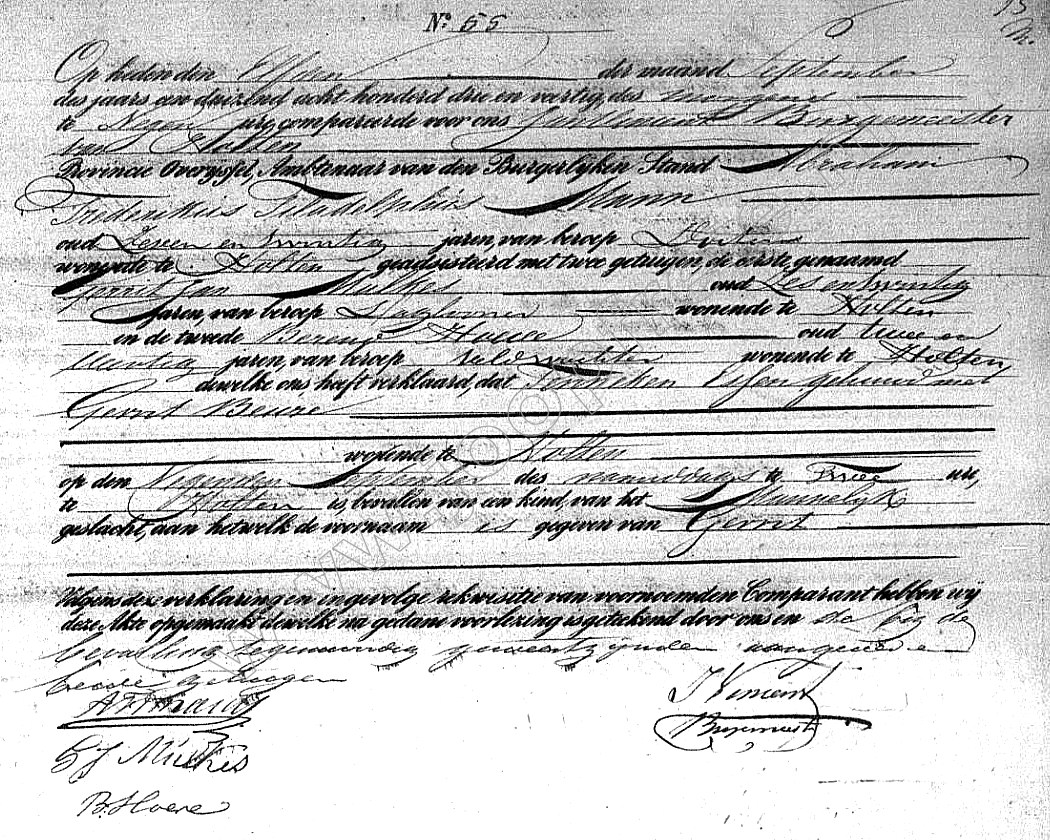 Nº 55
Op heden den Elfden der maand September
des jaars een duizend acht honderd drie en veertig, des morgens
te Negen ure compareerde voor ons Burgemeester
van Holten
Provincie Overijssel, Ambtenaar van den Burgerlijken Stand Abraham
Frederikus Filadelphus
oud Zeven en twintig jaren, van beroep
wonende te Holten geadsisteerd met twee getuigen, de eerste genaamd
Gerrit Jan Mulkes oud Zes en twintig
jaren, van beroep wonende te Holten
en de tweede Berend oud twee en
twintig jaren, van beroep veldwachter wonende te Holten
dewelke ons heeft verklaard, dat Jenneken gehuwd met
Gerrit
wonende te Holten
op den Negenden September des namiddags te Twee ure,
te Holten is bevallen van een kind, van het Mannelijke
geslacht, aan hetwelk de voornaam is gegeven van Gerrit
Volgens deze verklaring en ingevolge rekwisitie van voornoemden Comparant hebben wij
deze Akte opgemaakt dewelke na gedane voorlezing is geteekend door ons en de bij de
bevalling tegenwoordig geweest zijnde aangever en
beide getuigen
J Vincent
Burgemeester
GJ Mulkes